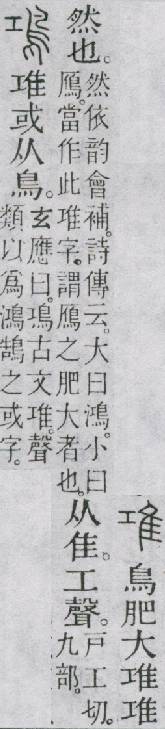 𨾊 鳥肥大𨾊𨾊
然也。
然依韵會補。詩傳云。大曰鴻。小曰
鴈。當作此𨾊字。謂鴈之肥大者也。
从隹。工聲。
戸工切。
九部。
䲨 𨾊或从鳥。
玄應曰。䲨古文𨾊。聲
類以爲鴻鵠之或字。